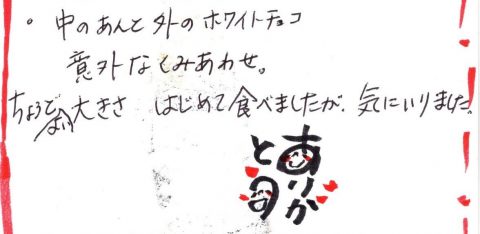 。中のあんと外のホワイトチョコ
意外なくみあわせ。
ちょうどよい大きさ はじめて食べましたが、気にいりました。
ありが
との